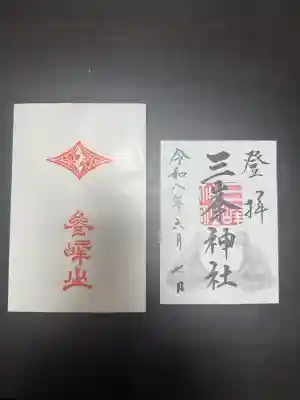 参峰山
登拝
三峯神社
令和八年六月七日